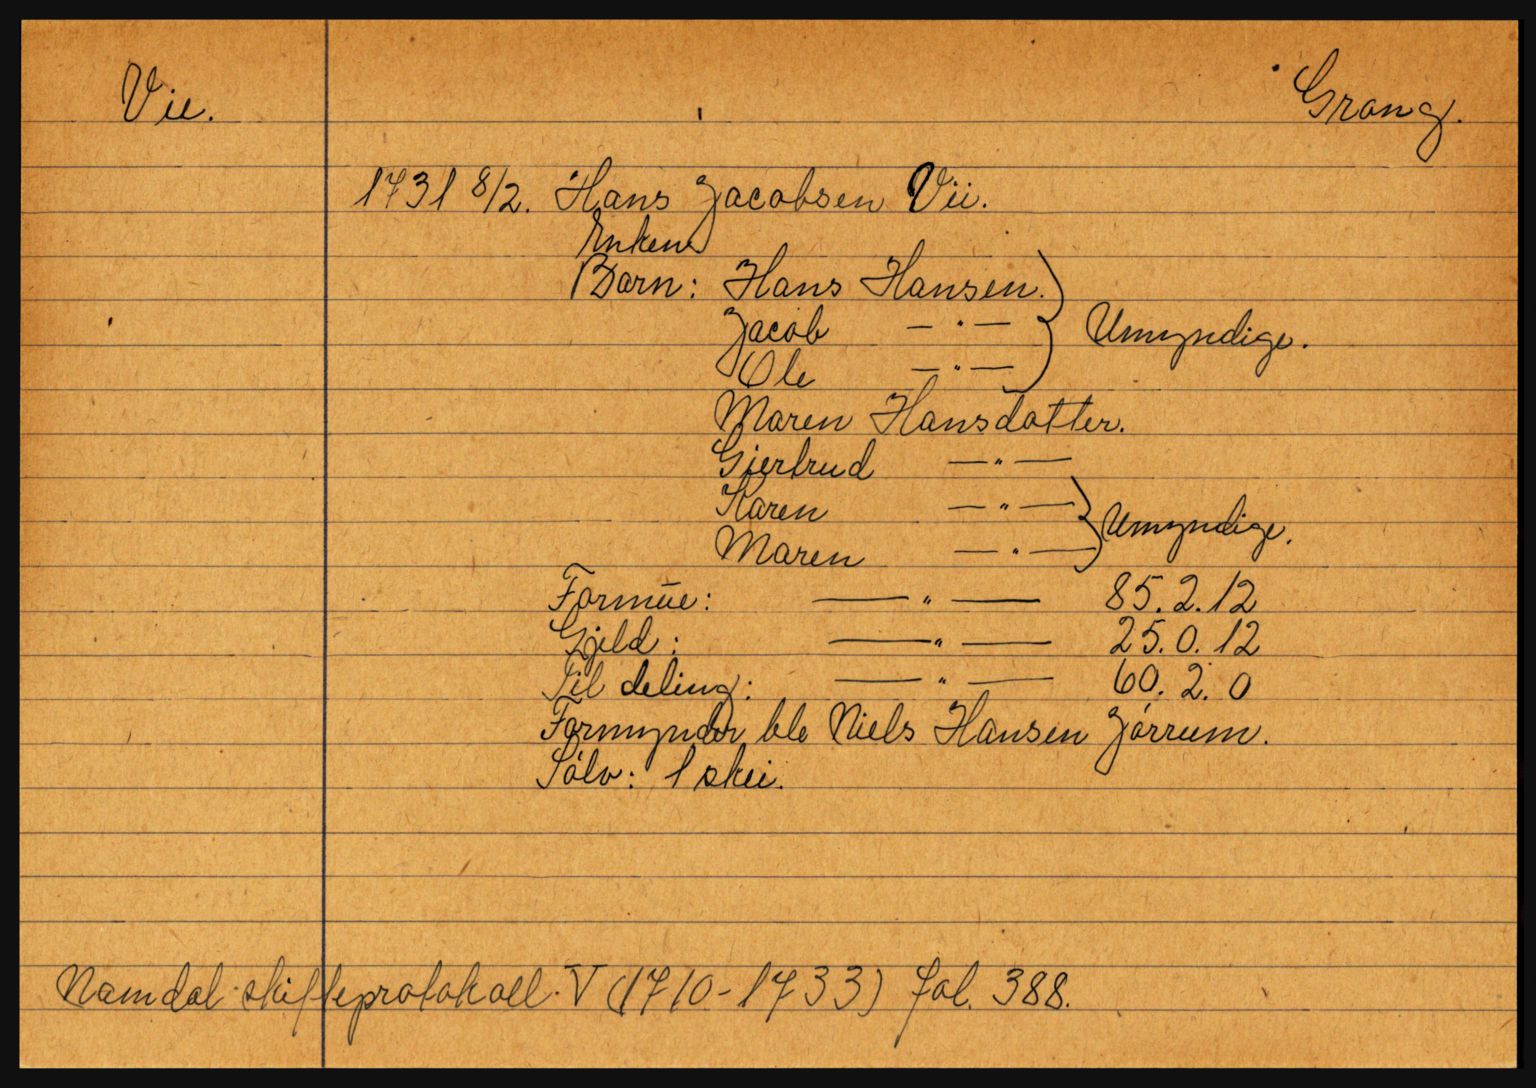 Vie.
Grong.
1731 8/2. Hans Jacobsen Vii.
Enken
Barn: Hans Hansen.
Jacob — " —
Ole — " —
Umyndige.
Maren Hansdatter.
Gjertrud — " —
Karen — " —
Maren — " —
Umyndige.
Formue: — " — 85. 2. 12
Gjeld: — " — 25. 0. 12
Til deling: — " — 60. 2. 0
Formynder ble Niels Hansen Jørrum.
Sølv: 1 skei.
Namdal skifteprotokoll V (1710-1733) fol. 388.